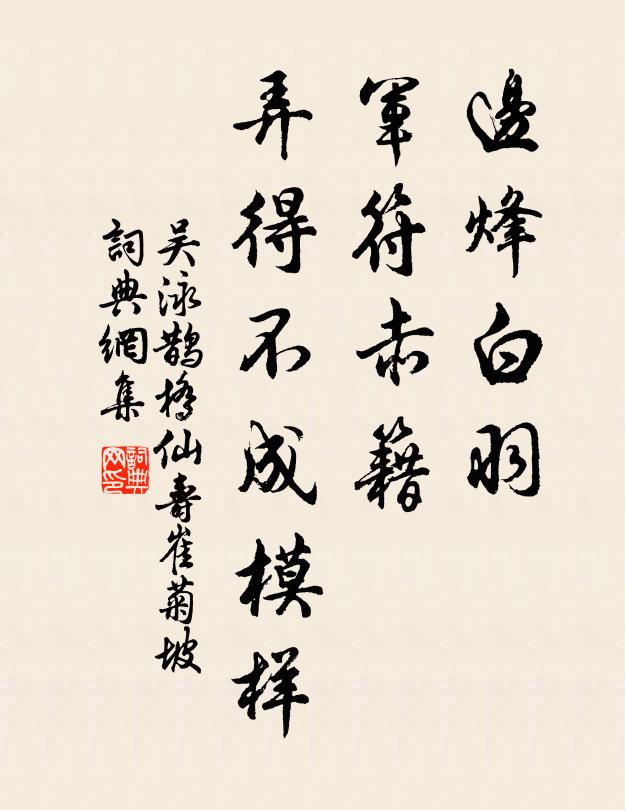 邊烽白羽
軍符赤籍
弄得不成模样
吴泳鵲橋仙壽崔菊坡
詞典網集
詞典网印